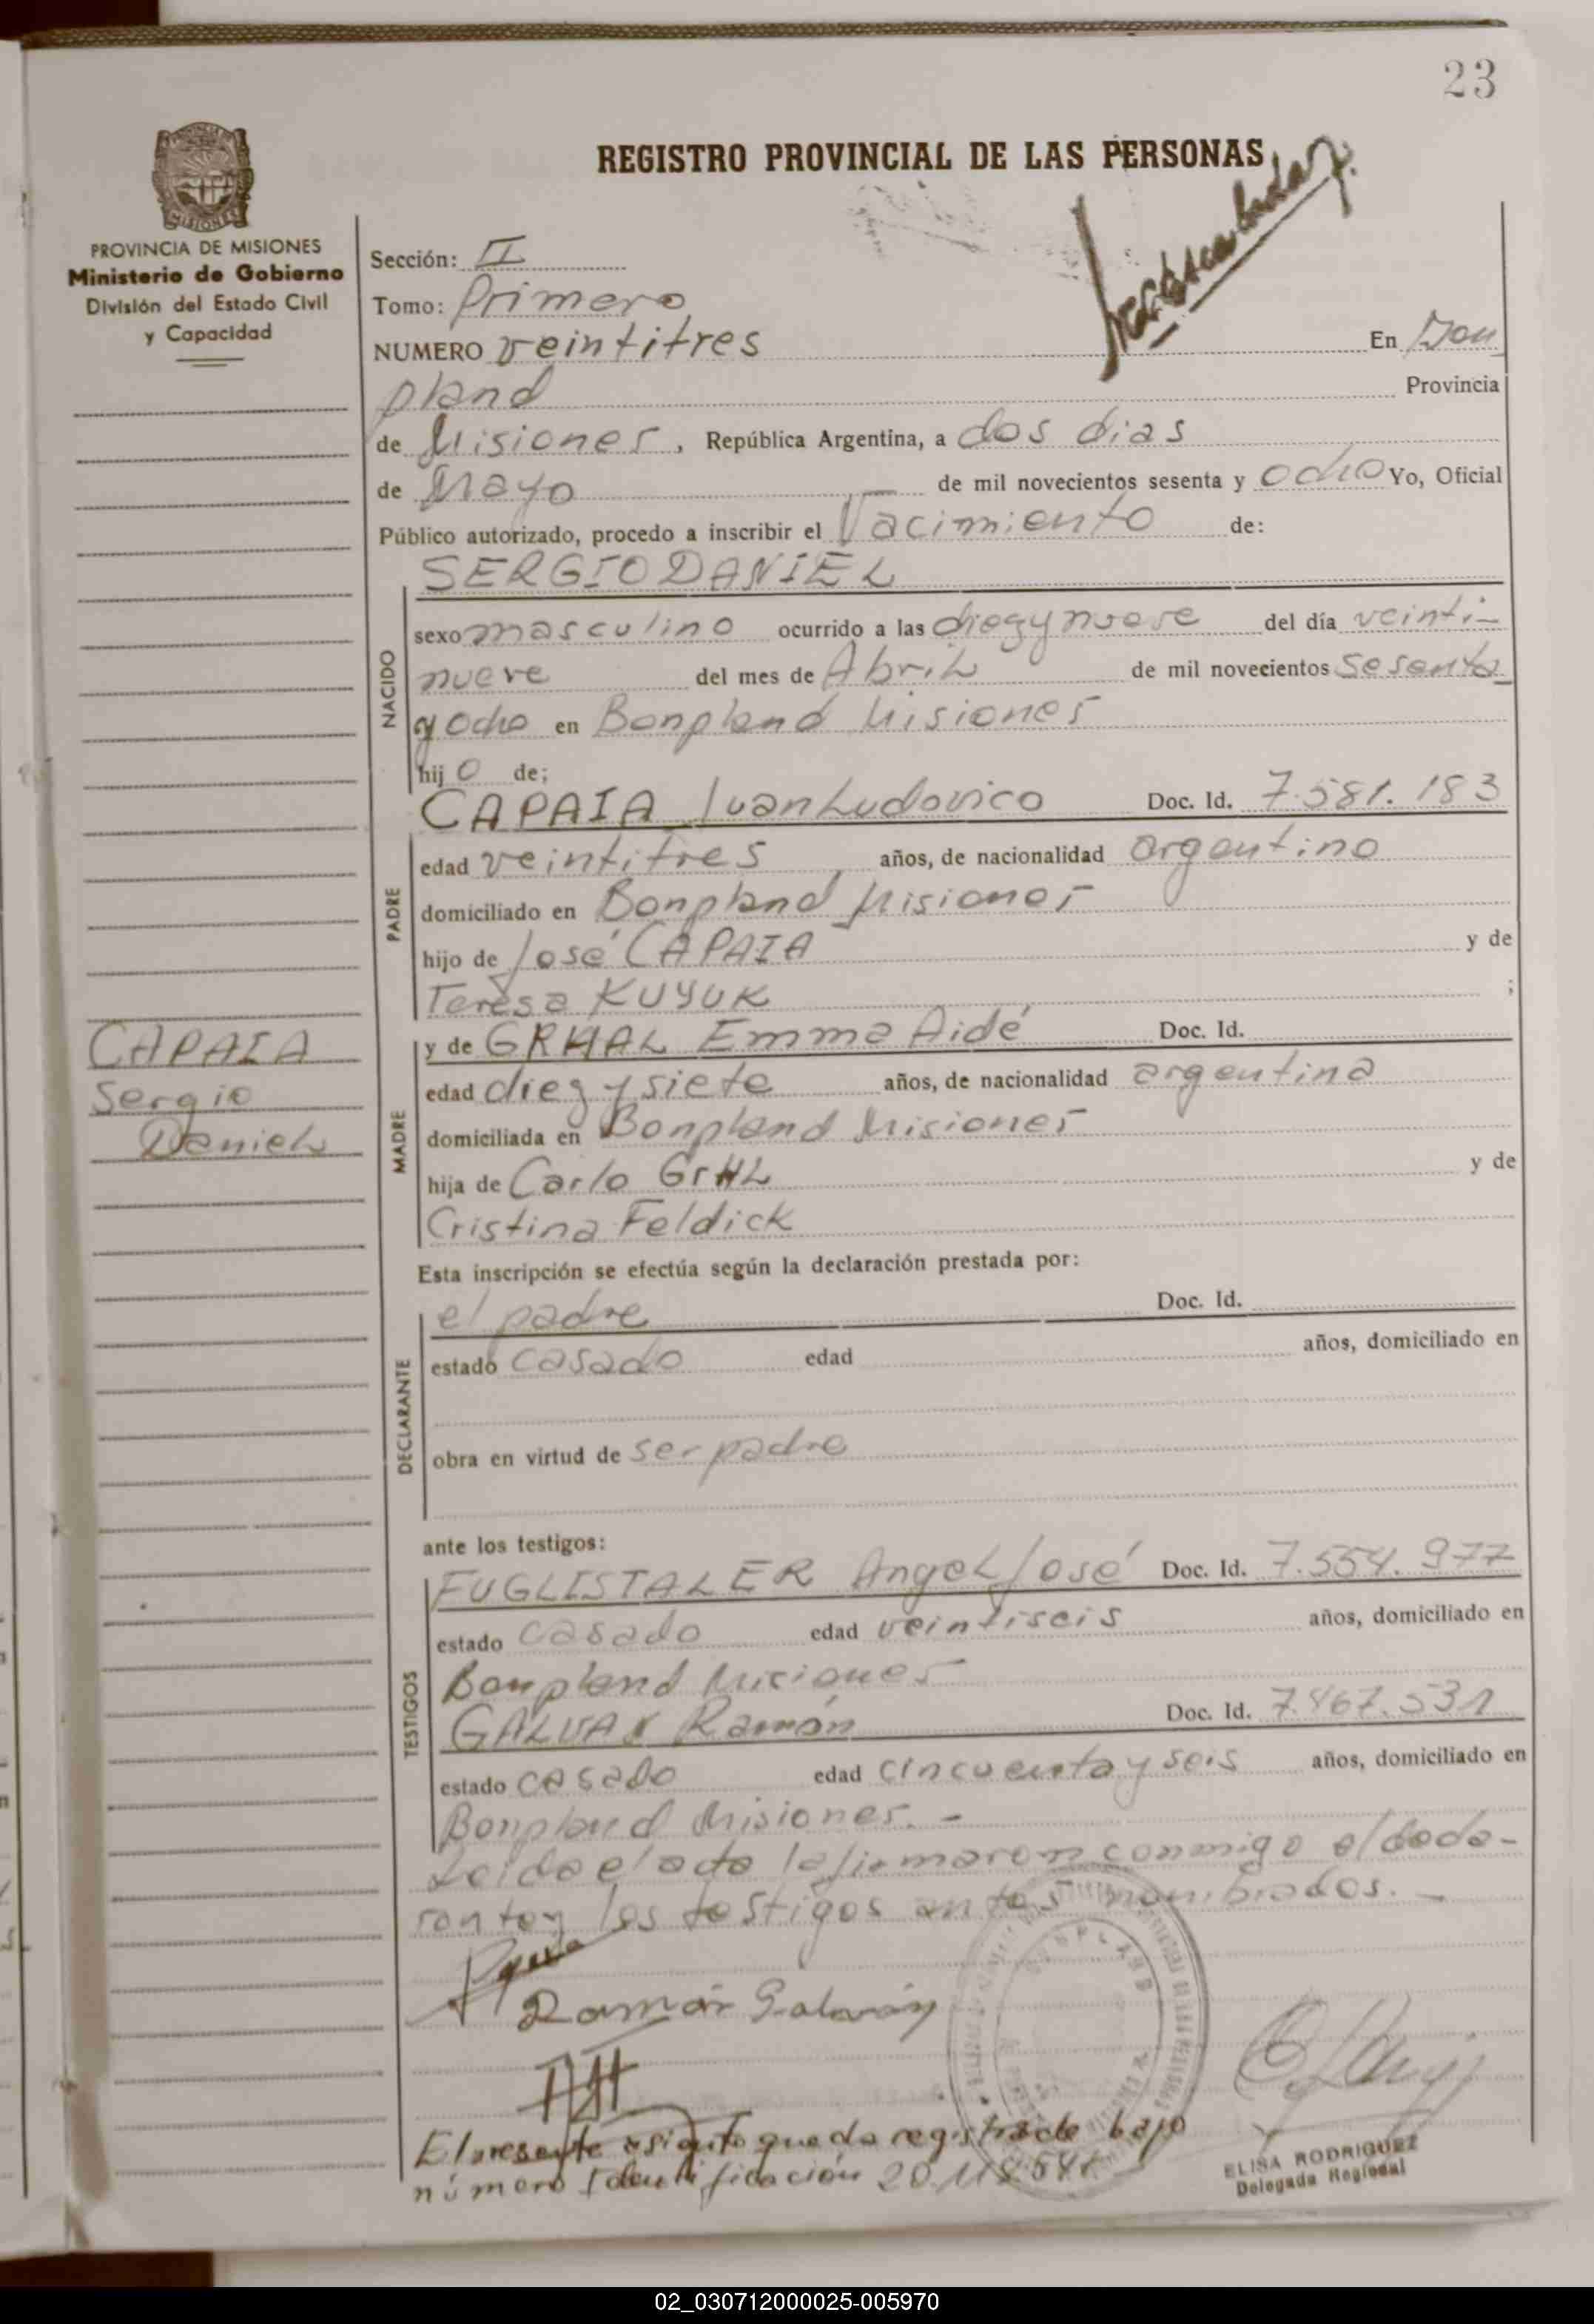 23
REGISTRO PROVINCIAL DE LAS PERSONAS
PROVINCIA DE MISIONES
Ministerio de Gobierno
División del Estado Civil
y Capacidad
Sección: II
Tomo: Primero
NUMERO veintitres En Bon
pland Provincia
de Misiones, República Argentina, a dos dias
de Mayo de mil novecientos sesenta y ocho Yo, Oficial
Público autorizado, procedo a inscribir el Nacimiento de:
SERGIO DANIEL
NACIDO
sexo masculino ocurrido a las diez y nueve del día veinti-
nueve del mes de Abril de mil novecientos sesenta
y ocho en Bonpland Misiones
hijo de;
CAPAIA Juan Ludovico Doc. Id. 7.581.183
PADRE
edad veintitres, años, de nacionalidad argentino
domiciliado en Bonpland Misiones
hijo de José CAPAIA y de
Teresa KUYUK ;
y de GRHAL Emma Aidé Doc. Id.
MADRE
edad diez y siete años, de nacionalidad argentina
domiciliada en Bonpland Misiones
hija de Carlo GrHL y de
Cristina Feldick
CAPAIA
Sergio
Daniel
Esta inscripción se efectúa según la declaración prestada por:
el padre Doc. Id.
DECLARANTE
estado casado edad años, domiciliado en
obra en virtud de ser padre
ante los testigos:
FUGLISTALER Angel José Doc. Id. 7.554.977
TESTIGOS
estado casado edad veintiseis años, domiciliado en
Bonpland Misiones
GALVAN Ramón Doc. Id. 7.467.531
estado casado edad cincuenta y seis años, domiciliado en
Bonpland Misiones.-
Leida el acta la firmaron conmigo el decla-
rante y los testigos antes nombrados.-
Ramón Galván
El presente asiento queda registrado bajo
número Identificación 20.118.541
ELISA RODRIGUEZ
Delegada Regional
02_030712000025-005970